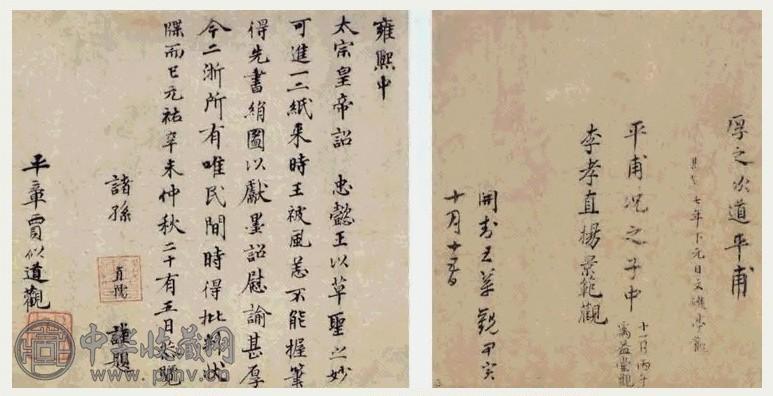 厚之次道平甫
七年下元日
平甫況之子中
十一月丙午
李孝直揚景範觀
開封王華觀甲寅
十月十五日
雍熙中
太宗皇帝詔 忠懿王以草聖之妙
可進一二紙来時王被風恙不能握筆
得先書絹圖以獻墨詔慰諭甚厚
今二浙所有唯民間時得批判狀
牒而已元祐辛未仲秋二十有五日恭覽
諸孫 直孺 謹題
平章賈似道觀
中华收藏网